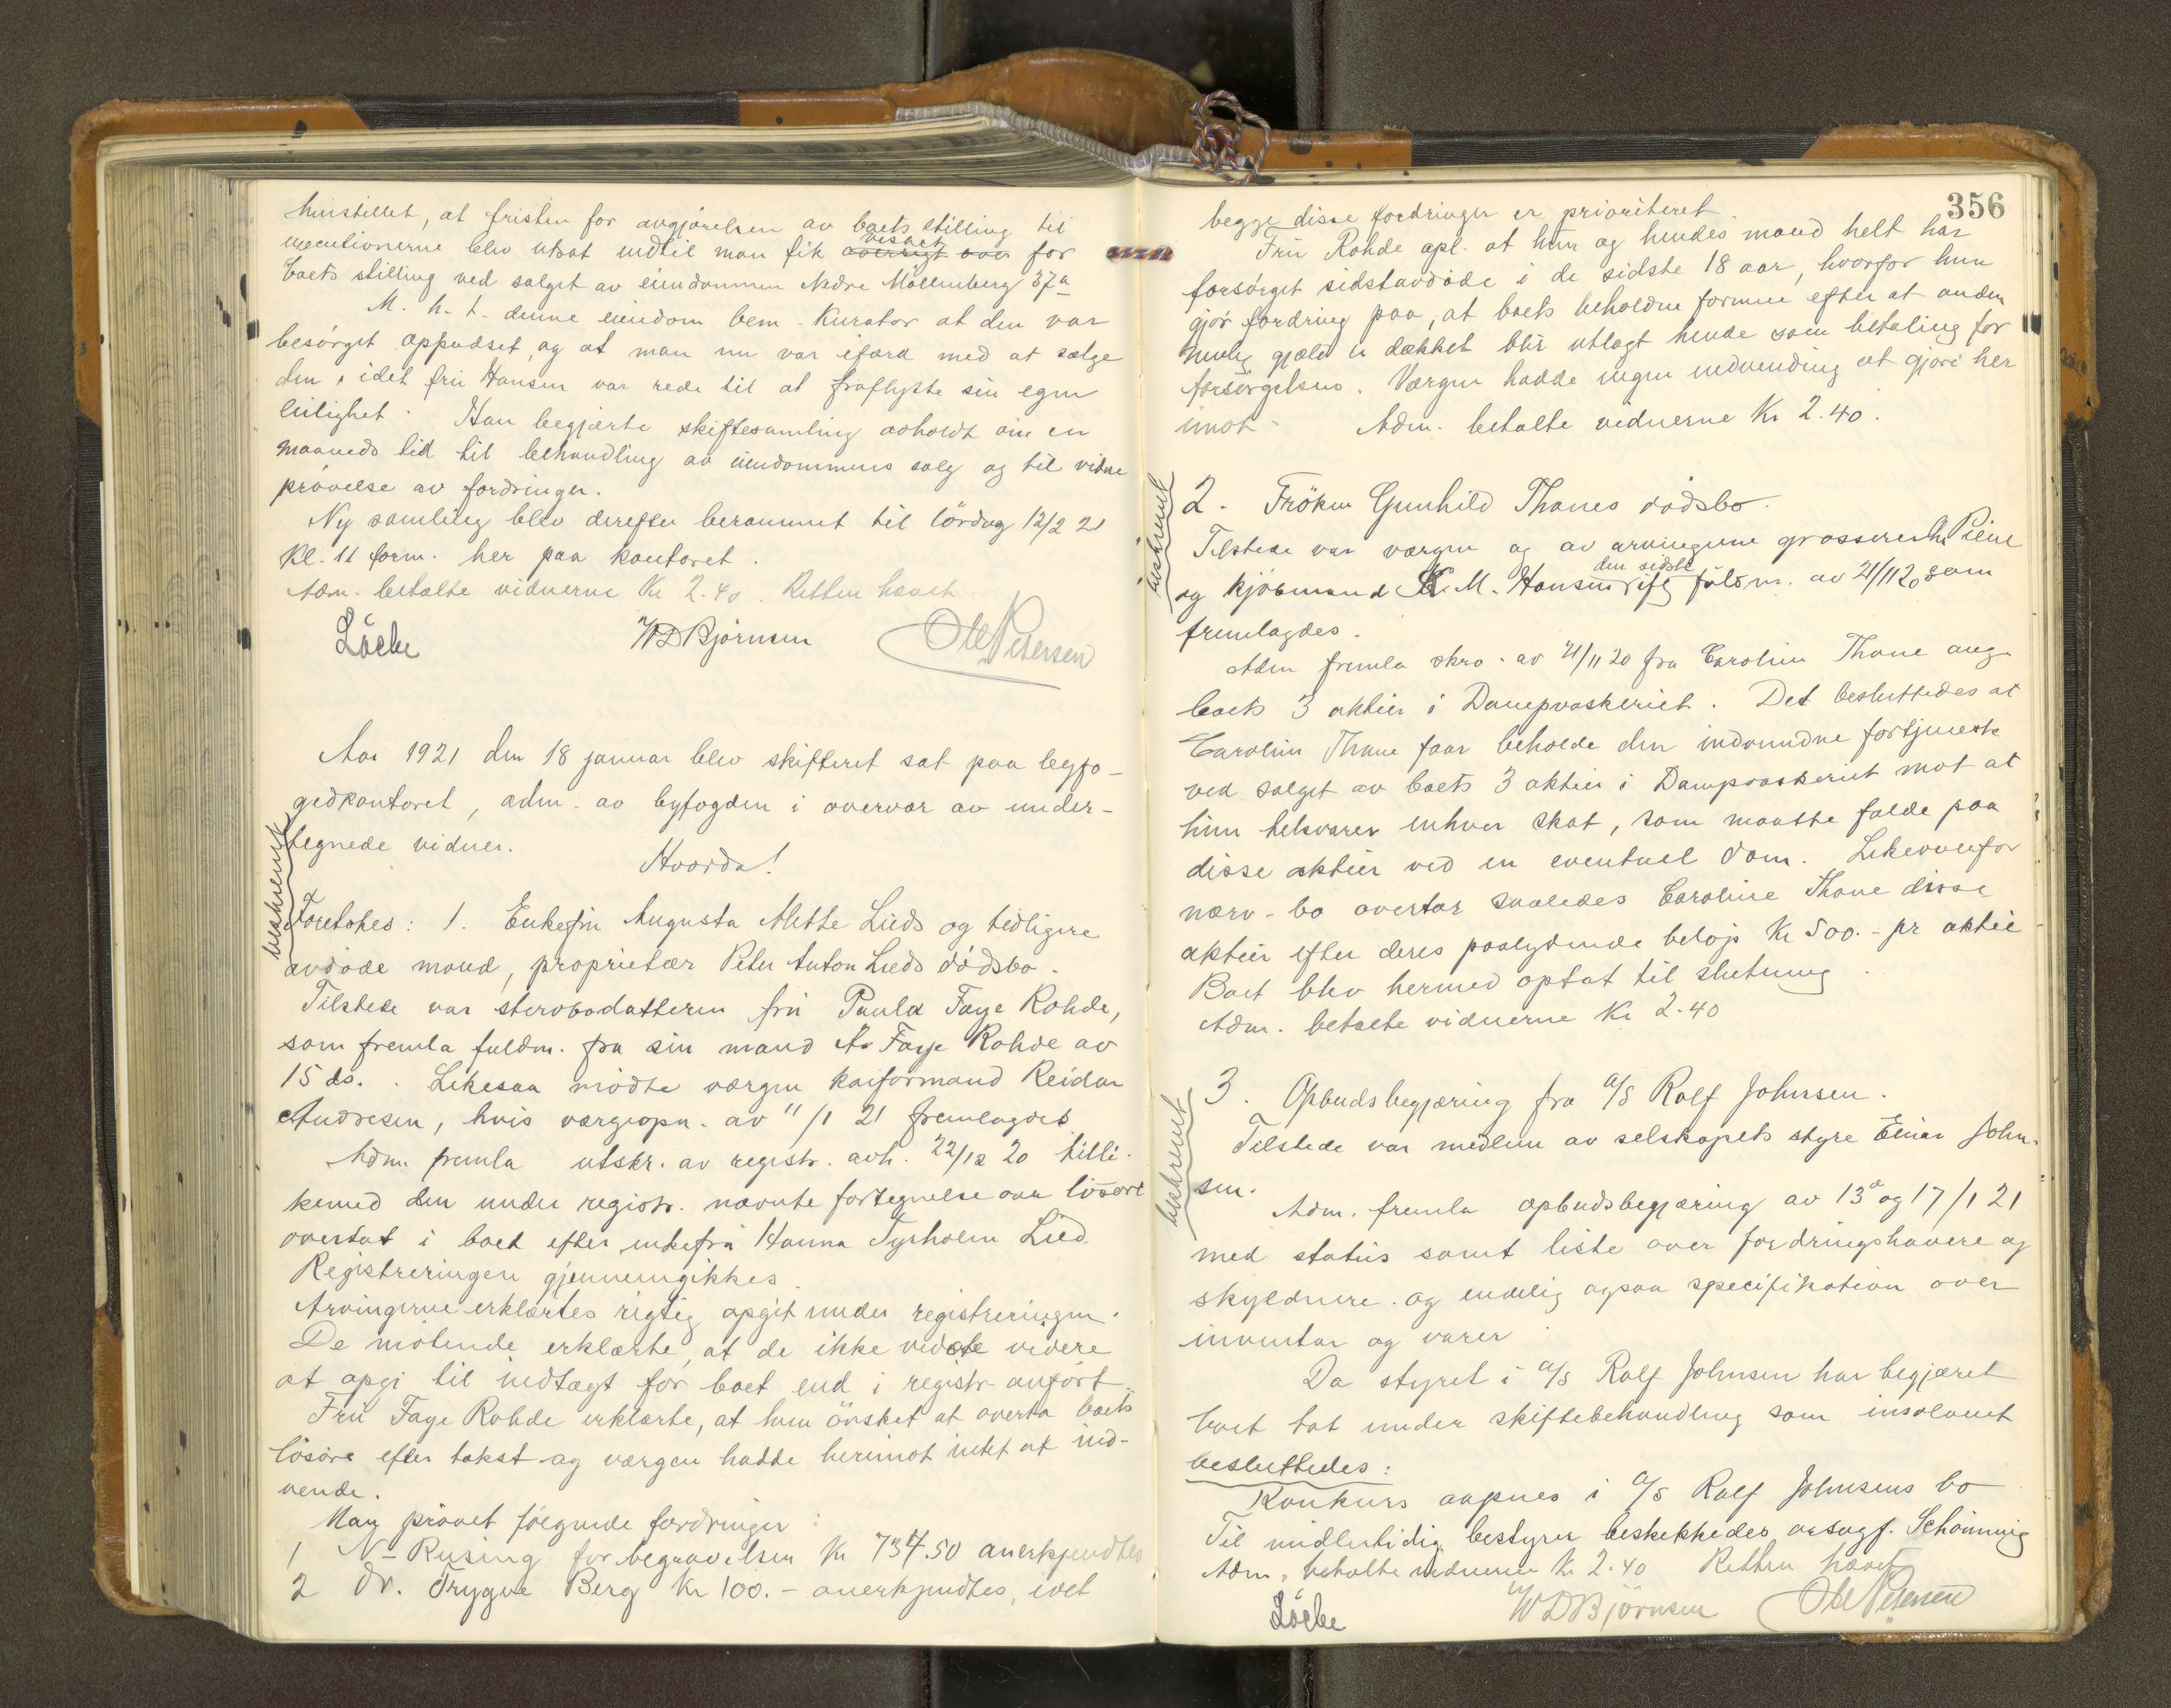 henstillet, at fristen for avgjörelsen av boets stilling til
executionerne blev utsat indtil man fik oversigt over vishet for
boets stilling ved salget av eiendommen Nedre Möllenberg 37a
M. h. t. denne eiendom bem. Kurator at den var
besörget oppudset, og at man nu var ifærd med at sælge
den, idet fru Hansen var rede til at fraflytte sin egen
leilighet. Han begjærte skiftesamling avholdt om en
maaneds tid til behandling av eiendommens salg og til videre
prövelse av fordringer.
Ny samling blev derefter berammet til lördag 12/2 21
Kl. 11 form. her paa kontoret.
Adm. betalte vidnerne Kr 2.40. Retten hævet
Löcke W D Björnsen Ole Petersen
Aar 1921 den 18 januar blev skifteret sat paa byfo-
gedkontoret, adm. av byfogden i overvær av under-
tegnede vidner.
Hvorda!
beskrevet
Foretokes: 1. Enkefru Augusta Mette Lieds og tidligere
avdöde mand, proprietær Peter Anton Lieds dödsbo.
Tilstede var stervbodatteren fru Paula Faye Rohde,
som fremla fuldm. fra sin mand Av Faye Rohde av
15 ds. Likesaa mödte værgen kaiformand Reidar
Andresen, hvis værgeopn. av 11/1 21 fremlagdes
Adm. fremla utskr. av registr. avh. 22/12 20 tilli-
kemed den under registr. nævnte fortegnelse over lösöre
overtat i boet efter enkefru Hanna Tyrholm Lied.
Registreringen gjennemgikkes.
Arvingerne erklærtes rigtig opgit under registreringen.
De mötende erklærte, at de ikke vidste videre
at opgi til indtægt for boet end i registr. anfört.
Fru Faye Rohde erklærte, at hun önsket at overta boets
lösöre efter takst og værgen hadde herimot intet at ind-
vende.
Man prövet fölgende fordringer:
1 N. Rusing for begravelsen Kr 734.50 anerkjendtes
2 Dr. Trygve Berg Kr 100.- anerkjendtes, idet
356
begge disse fordringer er prioriteret.
Fru Rohde opl. at hun og hendes mand helt har
forsörget sidstavdöde i de sidste 18 aar, hvorfor hun
gjör fordring paa, at boets beholdne formue efter at anden
mulig gjæld er dækket blir utlagt hende som betaling for
forsörgelsen. Værgen hadde ingen indvending at gjöre her
imot. Adm. betalte vidnerne Kr 2.40.
beskrevet
2. Fröken Gunhild Thanes dödsbo.
Tilstede var værgen og av arvingerne grosserer Piene
og kjöbmand K. M. Hansen, den sidste ifg. fuldm. av 21/11 20 som
fremlagdes.
Adm fremla skr. av 21/11 20 fra Caroline Thane ang.
boets 3 aktier i Dampvaskeriet. Det besluttedes at
Caroline Thane faar beholde den indvundne fortjeneste
ved salget av boets 3 aktier i Dampvaskeriet mot at
hun tilsvarer enhver skat, som maatte falde paa
disse aktier ved en eventuel dom. Likeovenfor
nærv. bo overtar saaledes Caroline Thane disse
aktier efter deres paalydende belöp Kr 500.- pr aktie.
Boet blev hermed optat til slutning.
Adm. betalte vidnerne Kr 2.40
beskrevet
3. Opbudsbegjæring fra A/S Rolf Johnsen.
Tilstede var medlem av selskapets styre Einar John-
sen.
Adm. fremla opbudsbegjæring av 13de og 17/1 21
med status samt liste over fordringshavere og
skyldnere. og endelig ogsaa specifikation over
inventar og varer.
Da styret i A/S Rolf Johnsen har begjæret
boet tat under skiftebehandling som insolvent
besluttedes:
Konkurs aapnes i A/S Rolf Johnsens bo
Til midlertidig bestyrer beskikkedes orsagf. Schönning
Adm. betalte vidnerne Kr 2.40 Retten hævet
Löcke W D Björnsen Ole Petersen